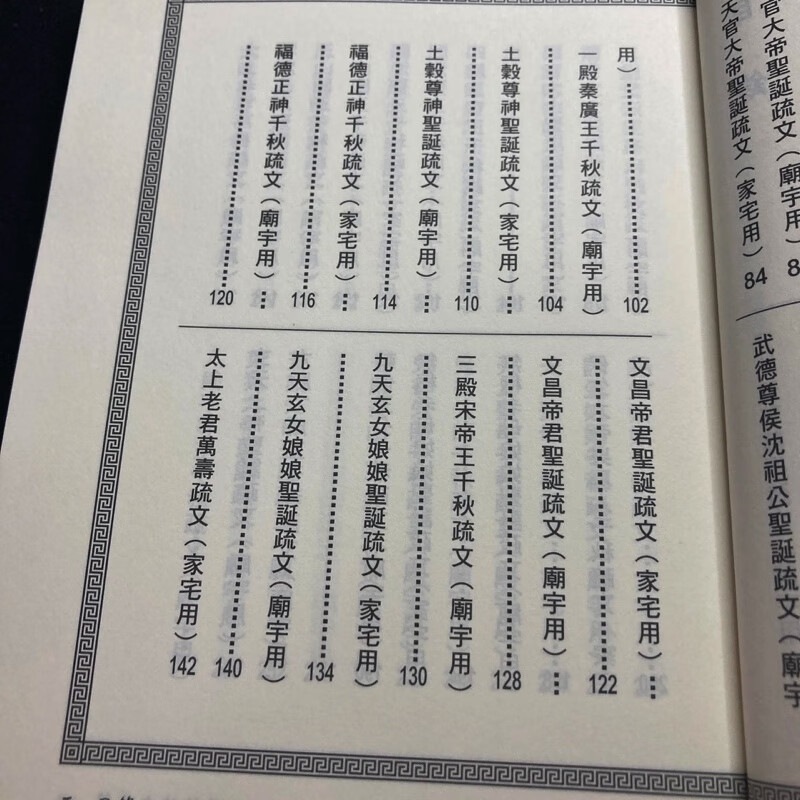 官大帝聖誕疏文（廟宇用）8
天官大帝聖誕疏文（家宅用）84
武德尊侯沈祖公聖誕疏文（廟宇
用）……102
一殿秦廣王千秋疏文（廟宇用）
……104
土穀尊神聖誕疏文（家宅用）…
……110
土穀尊神聖誕疏文（廟宇用）…
……114
福德正神千秋疏文（家宅用）…
……116
福德正神千秋疏文（廟宇用）…
……120
文昌帝君聖誕疏文（家宅用）…
……122
文昌帝君聖誕疏文（廟宇用）…
……128
三殿宋帝王千秋疏文（廟宇用）
……130
九天玄女娘娘聖誕疏文（家宅用）
……134
九天玄女娘娘聖誕疏文（廟宇用）
……140
太上老君萬壽疏文（家宅用）142